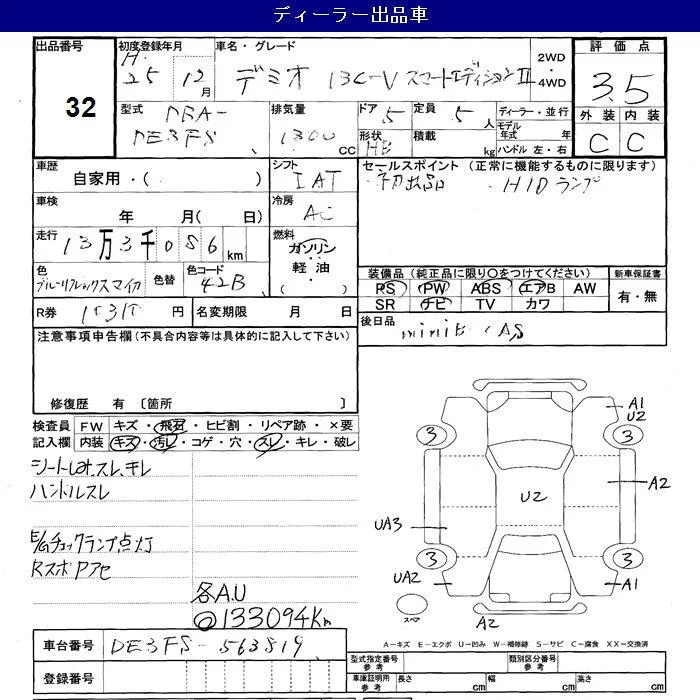 ディーラー出品車
出品番号 初度登録年月 車名・グレード 2WD ・ 4WD 評価点
32 H. 25 年 12 月 デミオ 13C-V スマートエディションII 3.5
型式 DBA-DE3FS 排気量 1300 cc ドア 5 定員 5 人 ディーラー・並行 外装 内装
形状 HB 積載 kg モデル年式 年 ハンドル 左・右 C C
車歴 自家用・( ) シフト IAT セールスポイント (正常に機能するものに限ります)
・初出品 ・HIDランプ
車検 年 月( 日) 冷房 AC
走行 13万3千086km 燃料 ガソリン・軽油・( )
色 ブルーリフレックスマイカ 色替 色コード 42B
装備品 (純正品に限り○をつけてください) 新車保証書
PS PW ABS エアB AW 有・無
SR ナビ TV カワ
R券 円 名変期限 月 日 後日品
注意事項申告欄 (不具合内容等は具体的に記入して下さい)
修復歴 有 〔箇所 〕
検査員記入欄 FW キズ・飛石・ヒビ割・リペア跡・×要
内装 キズ・汚レ・コゲ・穴・スレ・キレ・破レ
ハンドルスレ
E/Gチェックランプ点灯
各A.U
133094Km
A1
U2
3 3
A2
U2
UA3
3 3
UA2 A1
スペア A2
A−キズ E−エクボ U−凹み W−補修跡 S−サビ C−腐食 XX−交換済
車台番号 DE3FS-563819
型式指定番号 参考 類別区分番号 参考
登録番号 車庫証明用 参考 長さ cm 幅 cm 高さ cm